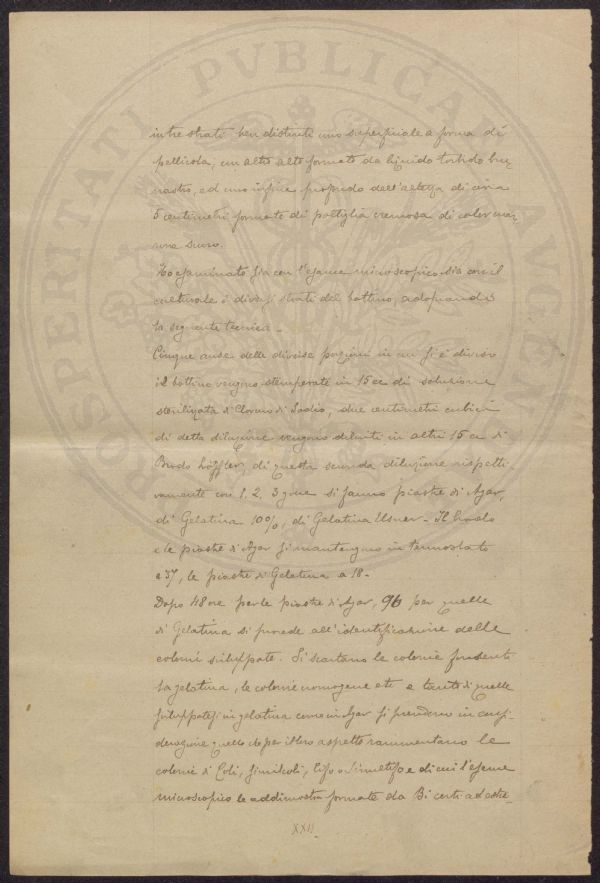 in tre strati ben distinti uno superficiale a forma di
pellicola, un altro alto formato da liquido torbido bru
nastro, ed uno infine profondo dell'altezza di circa
5 centimetri formato di poltiglia cremosa di color mar
rone scuro.
Ho esaminato sia con l'esame microscopico sia con il
culturale i diversi strati del bottino, adoperando
la seguente tecnica -
Cinque anse delle diverse porzioni in cui si è diviso
il bottino vengono stemperate in 15 cc di soluzione
sterilizzata di Cloruro di Sodio, due centimetri cubici
di detta diluzione vengono deluiti in altri 15 cc di
Brodo Löffler, di questa seconda diluzione rispetti
vamente con 1, 2, 3 gocce si fanno piastre di Agar,
di Gelatina 10%, di Gelatina Elsner - Il brodo
e le piastre di Agar si mantengono in termostato
a 37, le piastre di Gelatina a 18 -
Dopo 48 ore per le piastre di Agar, 96 per quelle
di Gelatina si procede all'identificazione delle
colonie sviluppate. Si scartano le colonie fondenti
la gelatina, le colonie cromogene etc e tanto di quelle
sviluppatesi in gelatina come in Agar si prendono in consi-
derazione quelle che per il loro aspetto rammentano le
colonie di Coli, simil coli, Tifo o simil tifo e di cui l'esame
microscopico le addimostra formate da
XXII
PROSPERITATI PVBLICAE AVGENDAE